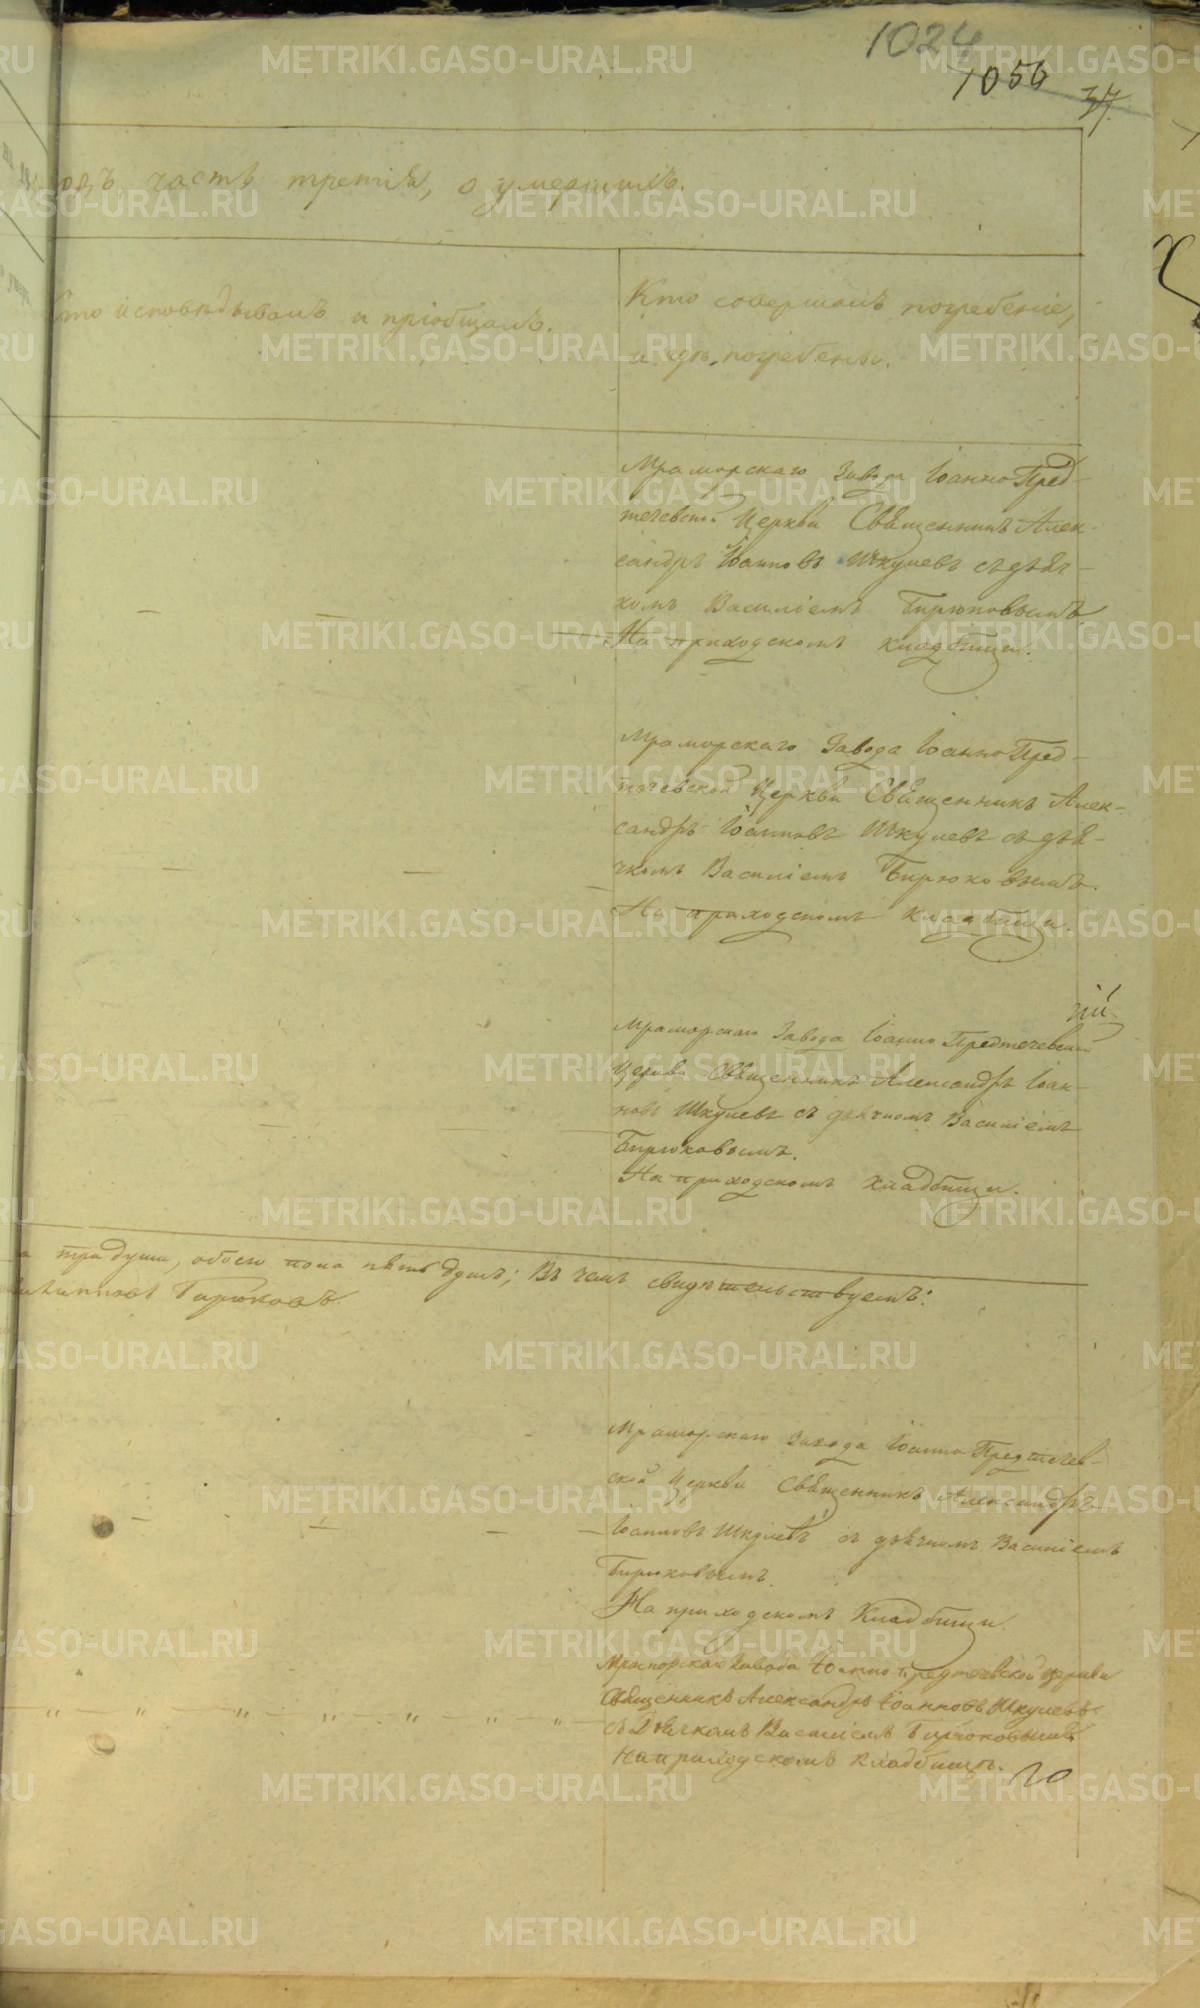 1024
1056
37.
одъ, часть третія, о умершихъ.
Кто исповѣдывалъ и пріобщалъ.
Кто совершалъ погребеніе,
и гдѣ погребены.
Мраморскаго Завода Іоанно Пред-
течевской Церкви Священникъ Алек-
сандръ Іоанновъ Шкулевъ съ дьяч-
комъ Василіемъ Бирюковымъ.
На приходскомъ кладбищи.
Мраморскаго Завода Іоанно Пред-
течевской Церкви Священникъ Алек-
сандръ Іоанновъ Шкулевъ съ дья-
чкомъ Василіемъ Бирюковымъ.
На приходскомъ кладбищи.
Мраморскаго Завода Іоанно Предтечевской
Церкви Священникъ Александръ Іоан-
новъ Шкулевъ съ дьячкомъ Василіемъ
Бирюковымъ.
На приходскомъ кладбищи.
три души, обоего пола пять душъ; Въ чемъ свидѣтельствуемъ:
Бирюковъ.
Мраморскаго Завода Іоанно Предтечев-
ской Церкви Священникъ Александръ
Іоанновъ Шкулевъ съ дьячкомъ Василіемъ
Бирюковымъ.
На приходскомъ Кладбищи.
Мраморскаго Завода Іоанно Предтечевской Церкви
Священникъ Александръ Іоанновъ Шкулевъ
съ Дьячкомъ Василіемъ Бирюковымъ
На приходскомъ кладбищѣ.
METRIKI.GASO-URAL.RU